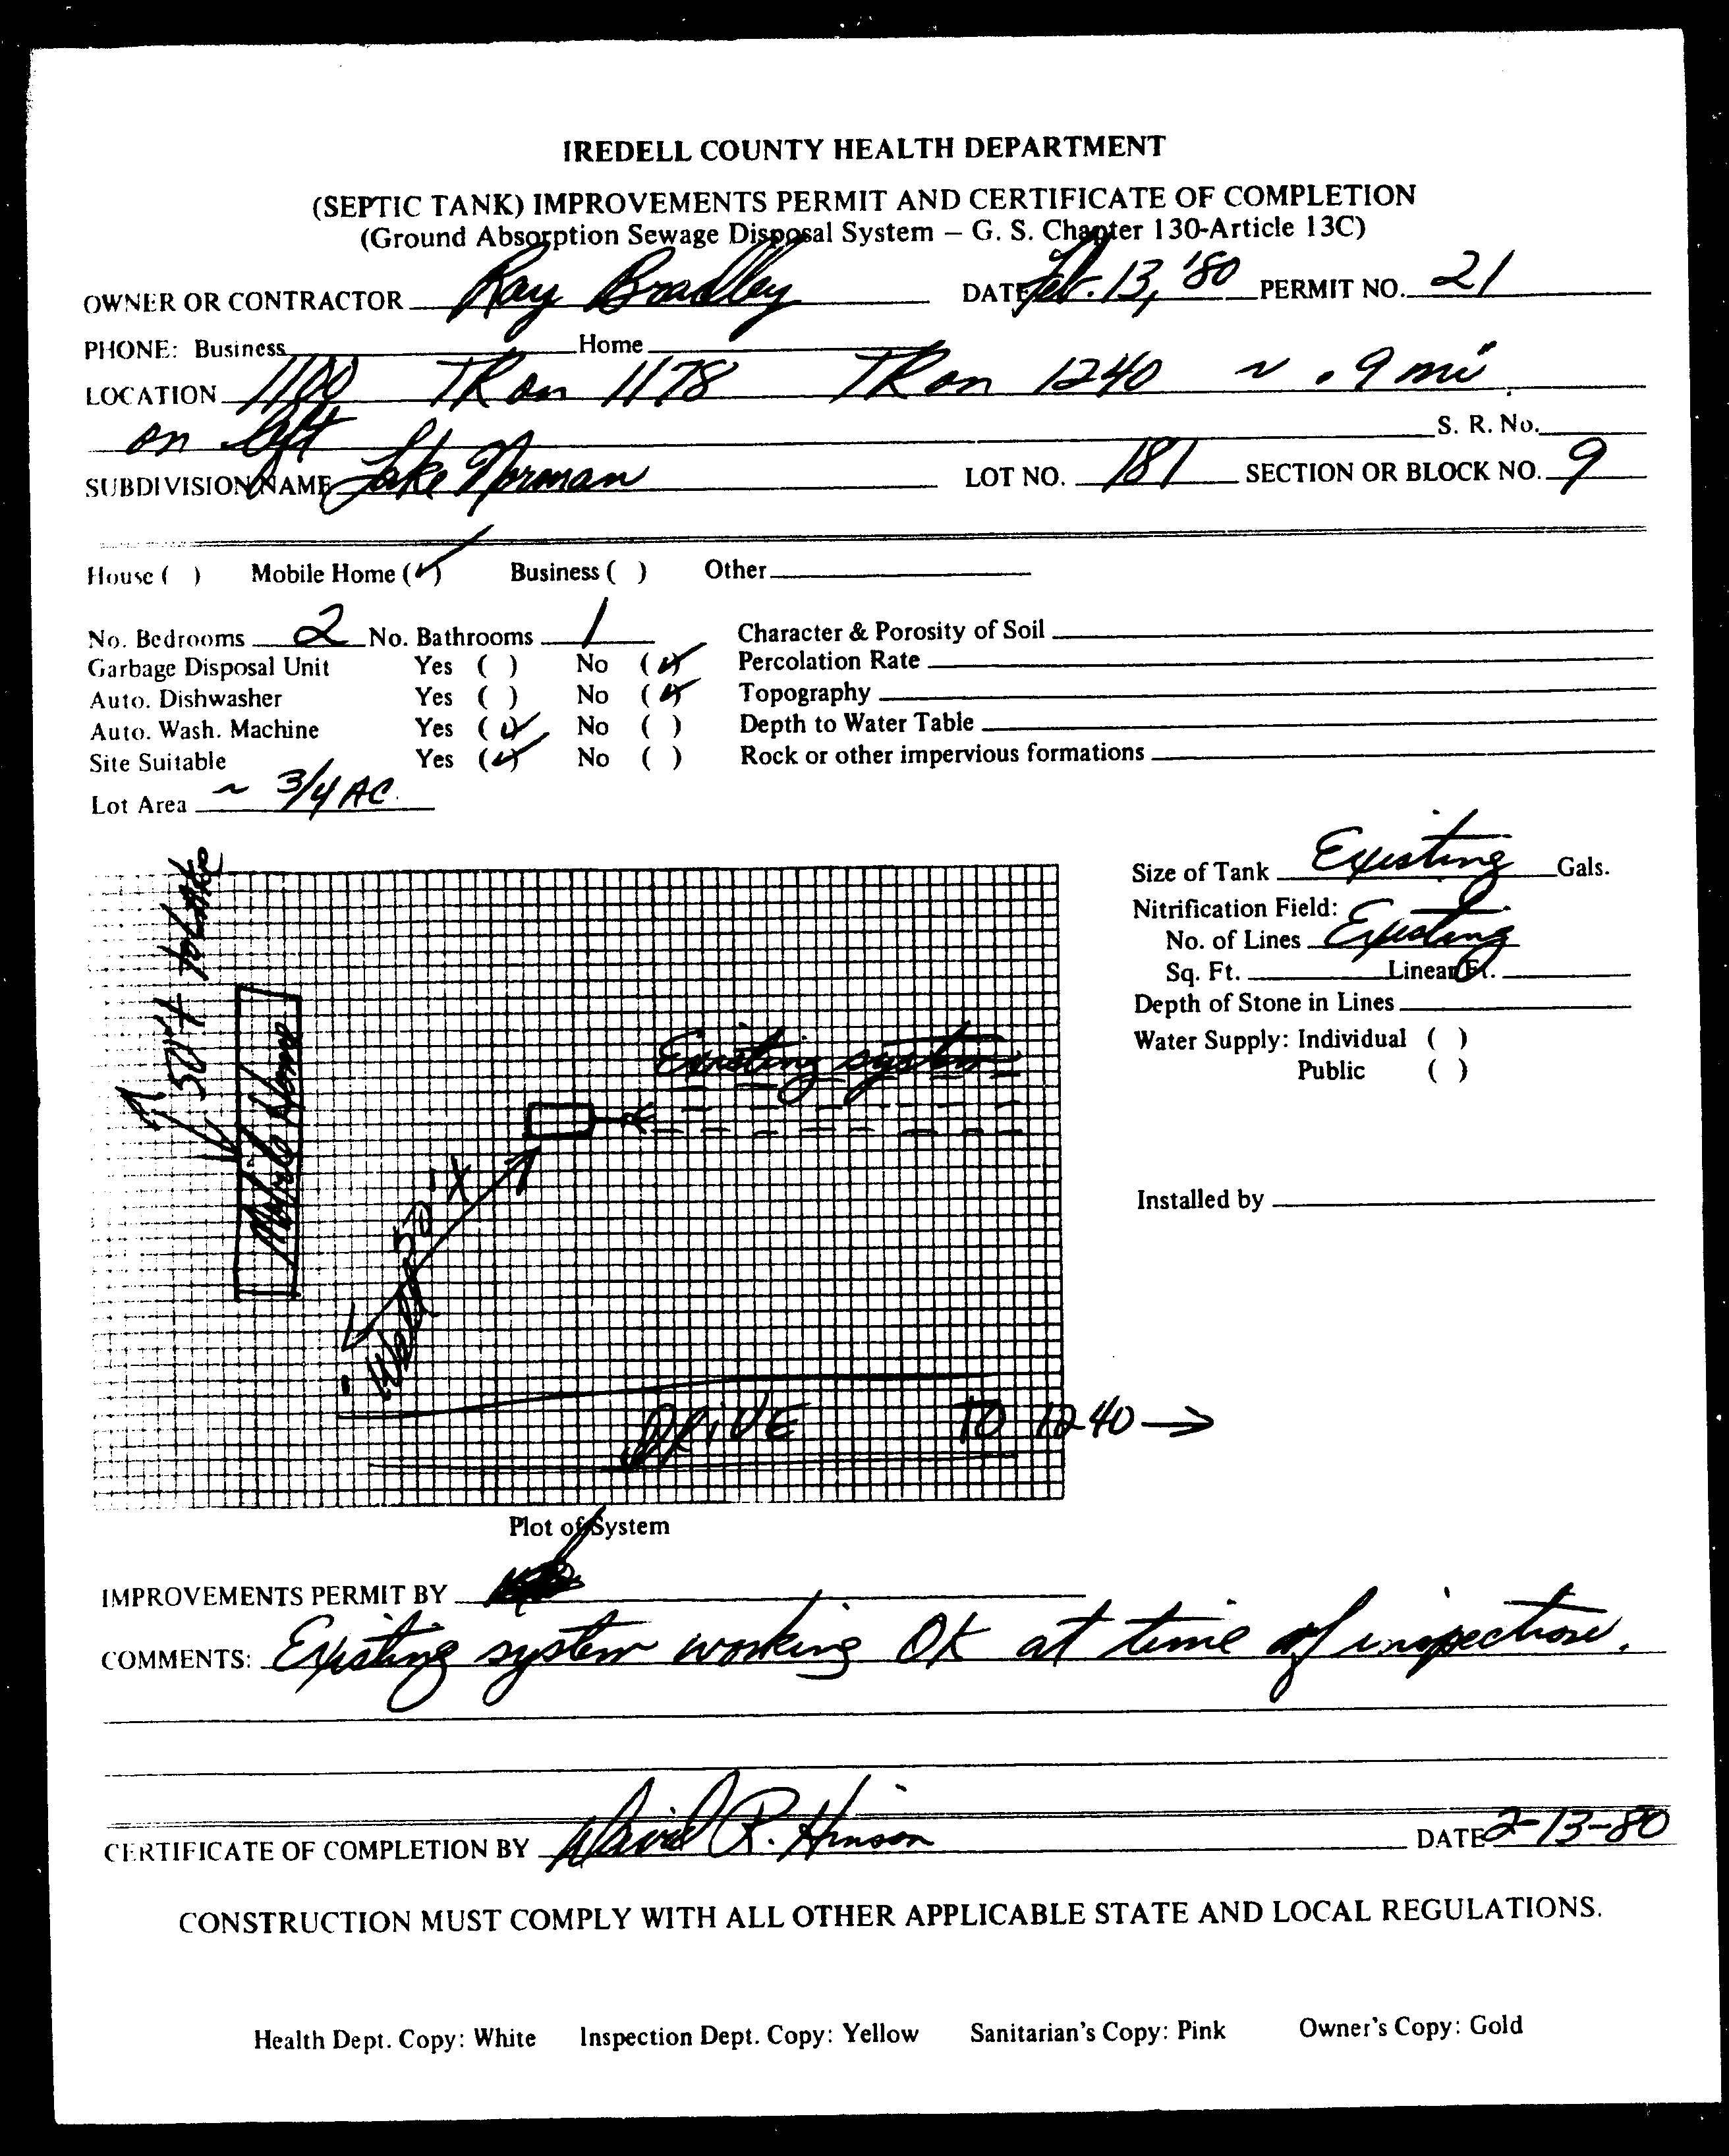 IREDELL COUNTY HEALTH DEPARTMENT
(SEPTIC TANK) IMPROVEMENTS PERMIT AND CERTIFICATE OF COMPLETION
(Ground Absorption Sewage Disposal System – G. S. Chapter 130-Article 13C)
OWNER OR CONTRACTOR Ray Bradley DATE Feb. 13, '80 PERMIT NO. 21
PHONE: Business Home
LOCATION 1100 TR on 1178 TR on 1240 ~ .9 mi
on left S. R. No.
SUBDIVISION NAME Lake Norman LOT NO. 181 SECTION OR BLOCK NO. 9
House ( ) Mobile Home (✓) Business ( ) Other
No. Bedrooms 2 No. Bathrooms 1 Character & Porosity of Soil
Garbage Disposal Unit Yes ( ) No (✓) Percolation Rate
Auto. Dishwasher Yes ( ) No (✓) Topography
Auto. Wash. Machine Yes (✓) No ( ) Depth to Water Table
Site Suitable Yes (✓) No ( ) Rock or other impervious formations
Lot Area ~ 3/4 AC.
Size of Tank Existing Gals.
Nitrification Field:
No. of Lines Existing
Sq. Ft. Linear Ft.
Depth of Stone in Lines
Water Supply: Individual ( )
Public ( )
Installed by
50'+ to Lake
Mobile Home
Existing system
50'+
Well
DRIVE TO 1240 →
Plot of System
IMPROVEMENTS PERMIT BY
COMMENTS: Existing system working OK at time of inspection.
CERTIFICATE OF COMPLETION BY David R. Hinson DATE 2-13-80
CONSTRUCTION MUST COMPLY WITH ALL OTHER APPLICABLE STATE AND LOCAL REGULATIONS.
Health Dept. Copy: White Inspection Dept. Copy: Yellow Sanitarian's Copy: Pink Owner's Copy: Gold